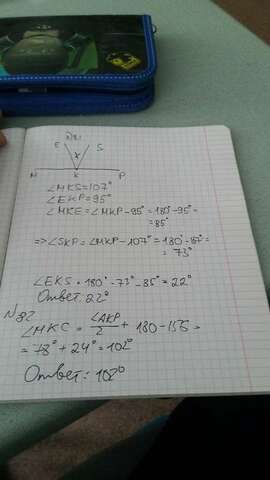 №81
E S
x
M K P
∠MKS=107°
∠EKP=95°
∠MKE=∠MKP-95°=180°-95°=
=85°
=>∠SKP=∠MKP-107°=180°-107°=
=73°
∠EKS=180°-73°-85°=22°
Ответ 22°
№82
∠MKC = ∠AKP/2 + 180-155 =
=78°+24°=102°
Ответ: 102°